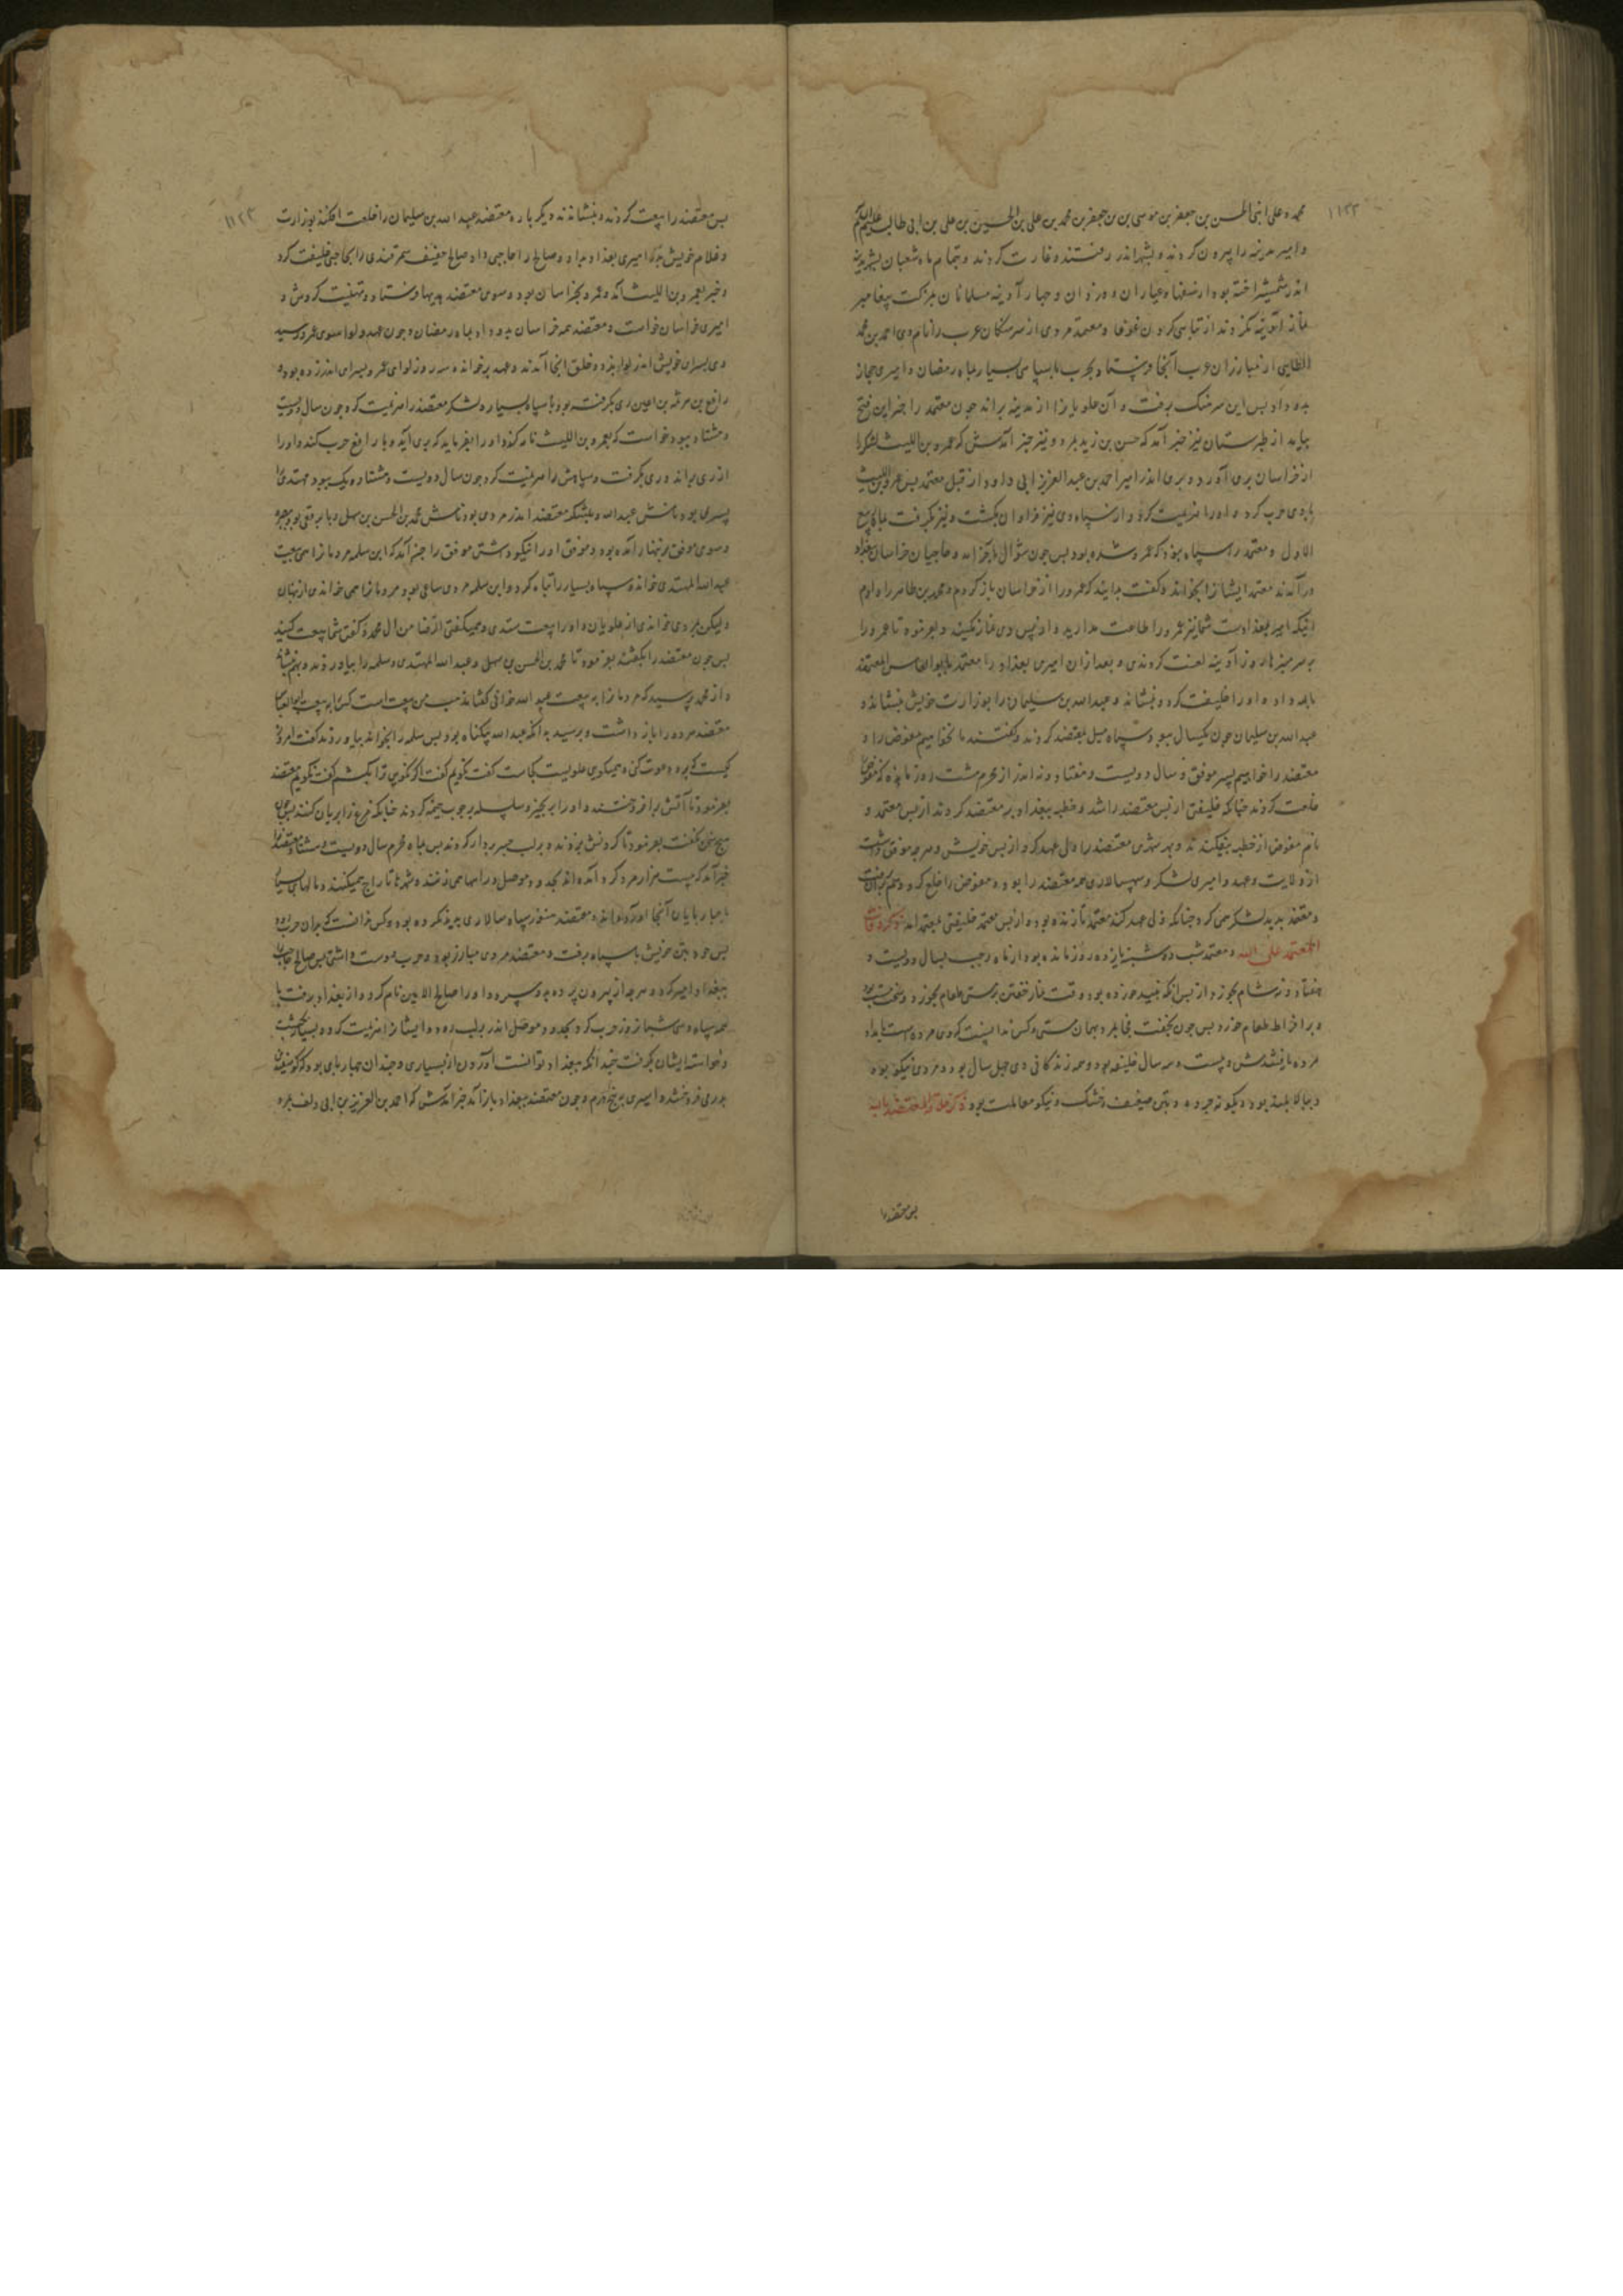 ۱۱۲۳
محمد و علی ابنی الحسن بن جعفر بن موسی بن جعفر بن محمد بن علی بن الحسین بن علی بن ابی طالب علیهم السلم
و امیر مدینه را بیرون کردند و بشهر اندر رفتند و غارت کردند و تمام ماه شعبان
اندر شمشیر اخته بود از ضعفا و عیاران و دزدان و چهار آدینه مسلمانان بمزکت پیغامبر
نماز آدینه نکردند از تباهی کردن غوغا و معتمد مردی از سرهنگان عرب را نام وی احمد بن محمد
الطایی از مبارزان عرب آنجا فرستاد بحرب با سپاهی بسیار بماه رمضان و امیری حجاز
بدو داد پس این سرهنک برفت و آن علویانرا از مدینه براند چون معتمد را خبر این فتح
بیامد از طبرستان نیز خبر آمد که حسن بن زید بمرد و نیز خبر آمدش که عمرو بن اللیث لشکر
از خراسان بری آورد و بری اندر امیر احمد بن عبد العزیز ابی دلود از قبل معتمد پس عمرو بن اللیث
با وی حرب کرد و او را هزیمت کرد و از سپاه وی نیز فراوان بکشت و نیز بگرفت بماه ربیع
الاول و معتمد را سپاه نبود که عمرو شده بود پس چون شوال و حاجیان خراسان بغداد
در آمدند معتمد ایشانرا بخواند و گفت بدانید که عمرو را از خراسان باز کردم و محمد بن طاهر را دادم
انیکه امیر بغداد است شما نیز عمرو را طاعت مدارید و از پس وی نماز مکنید و بفرمود تا عمرو را
بر سر منبرها روز آدینه لعنت کردندی و بعد از ان امیری بغداد را معتمد بابو العباس المعتضد
بالله داد و او را خلیفت کرد و بنشاند و عبد الله بن سلیمان را بوزارت خویش بنشاند و
عبد الله بن سلیمان چون یکسال ببود و سپاه میل بمعتضد کردند و گفتند ما نخواهیم مفوض را و
معتضد را خواهیم پسر موفق و سال دویست و هفتاد و نه اندر از محرم هشت روز مانده که مفوض
خلعت کردند چنانکه خلیفتی از پس معتضد را شد و خطبه ببغداد بر معتضد کردند از پس معتمد و
نام مفوض از خطبه بیفکندند و بهر شهری معتضد را ولی عهد کرد از پس خویش و هر چه موفق داشت
از ولایت و عهد و امیری لشکر و سپهسالاری همه معتضد را بود و مفوض را خلع کرد
و معتضد تدبیر لشکر همی کرد چنانکه ولی عهد کند معتمد تا زنده بود و از پس معتمد خلیفتی بمعتضد آمد ذکر وفات
المعتمد علی الله و معتمد شب دوشنبه یازده روز مانده بود از ماه رجب بسال دویست و
هفتاد و نه شام بخورد و از پس انکه نبید خورده بود وقت نماز خفتن برمستی طعام بخورد و
و بر افراط طعام خورد پس چون بخفت فجا بمرد بهمان مستی و کس ندانست که وی مرده است بامداد
مرده یافتندش و بیست و سه سال خلیفه بود و همه زندگانی وی چهل سال بود و مردی نیکو بود
و ببالا بلند بود و نیکو چرده و بتن ضعیف و خشک و نیکو معاملت بود ذکر خلافة المعتضد بالله
پس معتضد را
۱۱۲۳
پس معتضد را بیعت کردند و بنشاندند و دیگر باره معتضد عبد الله بن سلیمان را خلعت افکند بوزارت
و غلام خویش بدر را امیری بغداد بداد و صالح را حاجبی داد و صالح حفیف سمرقندی را بحاجبی خلیفت کرد
و خبر بعمرو بن اللیث آمد و عمرو بخراسان بود و سوی معتضد هدیها فرستاد و تهنیت کردش و
امیری خراسان خواست و معتضد همه خراسان بدو داد بماه رمضان و چون عهد و لوا سوی عمرو رسید
وی بسرای خویش اندر لوا بزد و خلق انجا آمدند و عهد برخواند و سه روز لوای عمرو بسرای اندر زده بود
رافع بن هرثمه بن اعین ری بگرفته بود با سپاه بسیار و لشکر معتضد را هزیمت کرد چون سال دویست
و هشتاد ببود خواست که بعمرو بن اللیث نامه کند و او را بفرماید که بری آید و با رافع حرب کند و او را
از ری براند و ری بگرفت و سپاهش را هزیمت کرد چون سال دویست و هشتاد و یک ببود مهتدی را
پسری بود نامش عبد الله و بلشکر معتضد اندر مردی بود نامش محمد بن الحسن بن سهل و با برقعی بود ببصره
و سوی موفق بزنهار آمده بود و موفق او را نیکو داشتی موفق را خبر آمد که ابن سلمه مردمانرا همی بیعت
عبد الله المهتدی خواند و سپاه بسیار را تباه کرد و ابن سلمه مردی ساعی بود مردمانرا همی خواندی از نهان
و لیکن مردی خواندی از علویان و او را بیعت ستدی و همیگفتی الرضا من ال محمد و گفتی شما بیعت کنید
پس چون معتضد را بگفتند بفرمود تا محمد بن الحسن بن سهل و عبد الله المهتدی و سلمه را بیاوردند و بنشاند
و از محمد پرسید که مردمانرا به بیعت عبد الله خوانی گفتا مذهب من بیعت است
معتضد هر دو را باز داشت و برسید بدانکه عبد الله بیگناه بود پس سلمه را بخواند بیاوردند گفت امروز
کیست که بدو دعوت کنی و همیگوی علویست کجاست گفت نگویم گفت اگر نگویی ترا بکشم گفت نگویم معتضد
بفرمود تا آتش برافروختند و او را بزنجیر و سلسله بر چوب خیمه کردند چنانکه مرغ را بریان کنند پس چون
هیچ سخن نگفت بفرمود تا گردنش بزدند و بر لب جسر بر دار کردند پس بماه محرم سال دویست و هشتاد و معتضد را
خبر آمد که بیست هزار مرد کرد آمده اند بحدود موصل و راهها همی زنند و شهرها تاراج همیکنند و مالهای بسیار
با چهارپایان آنجا اورده اند و معتضد هنوز سپاه سالاری پدید نکرده بود و کس ندانست که بدان حرب رود
پس خود بتن خویش با سپاه برفت و معتضد مردی مبارز بود و حرب دوست داشتی پس صالح حاجب را
ببغداد امیر کرد و هر چه از بیرون پرده بدو سپرد و او را صالح الامین نام کرد و از بغداد برفت با
همه سپاه و سی شبانروز حرب کرد بحدود موصل اندر بر لب رود و ایشانرا هزیمت کرد و بسیار بکشت
و خواسته ایشان بگرفت چندانکه ببغداد نتوانست آوردن از بسیاری و چندان چهارپای بود که گوسفندی
بدرمی فروخته شد و اسبی به پنج درم و چون معتضد ببغداد باز آمد خبر آمدش که احمد بن العزیز بن ابی دلف بمرد